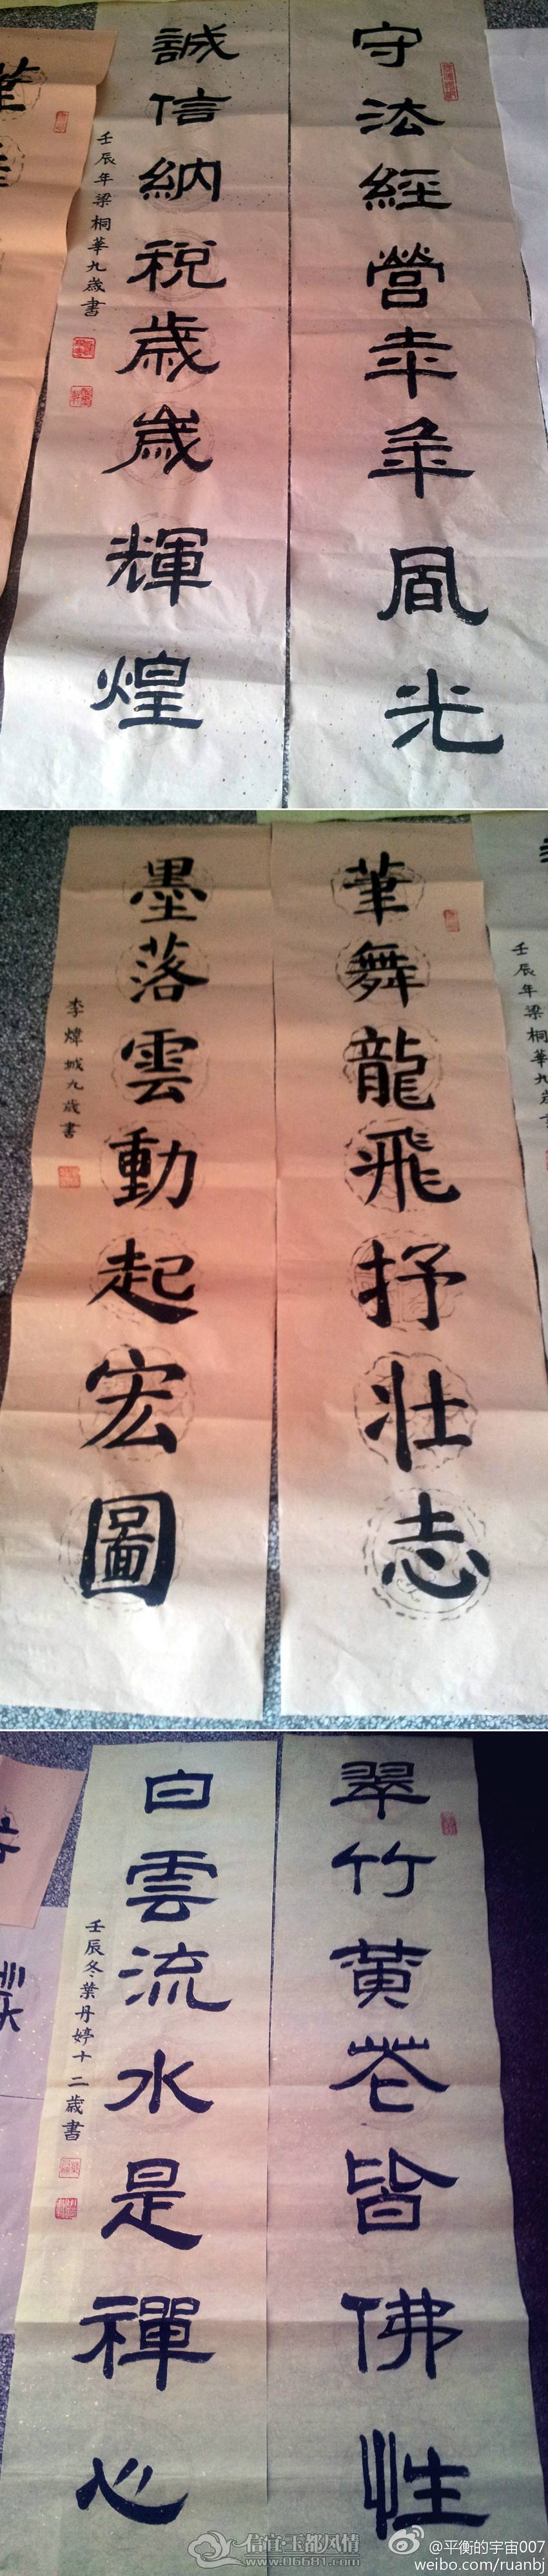 守法經營年年風光
誠信納稅歲歲輝煌
壬辰年梁桐華九歲書
筆舞龍飛抒壯志
墨落雲動起宏圖
李煒城九歲書
壬辰年梁桐華九歲
翠竹黃花皆佛性
白雲流水是禪心
壬辰冬葉丹婷十二歲書
信宜玉都风情
www.06681.com
@平衡的宇宙007
weibo.com/ruanbj